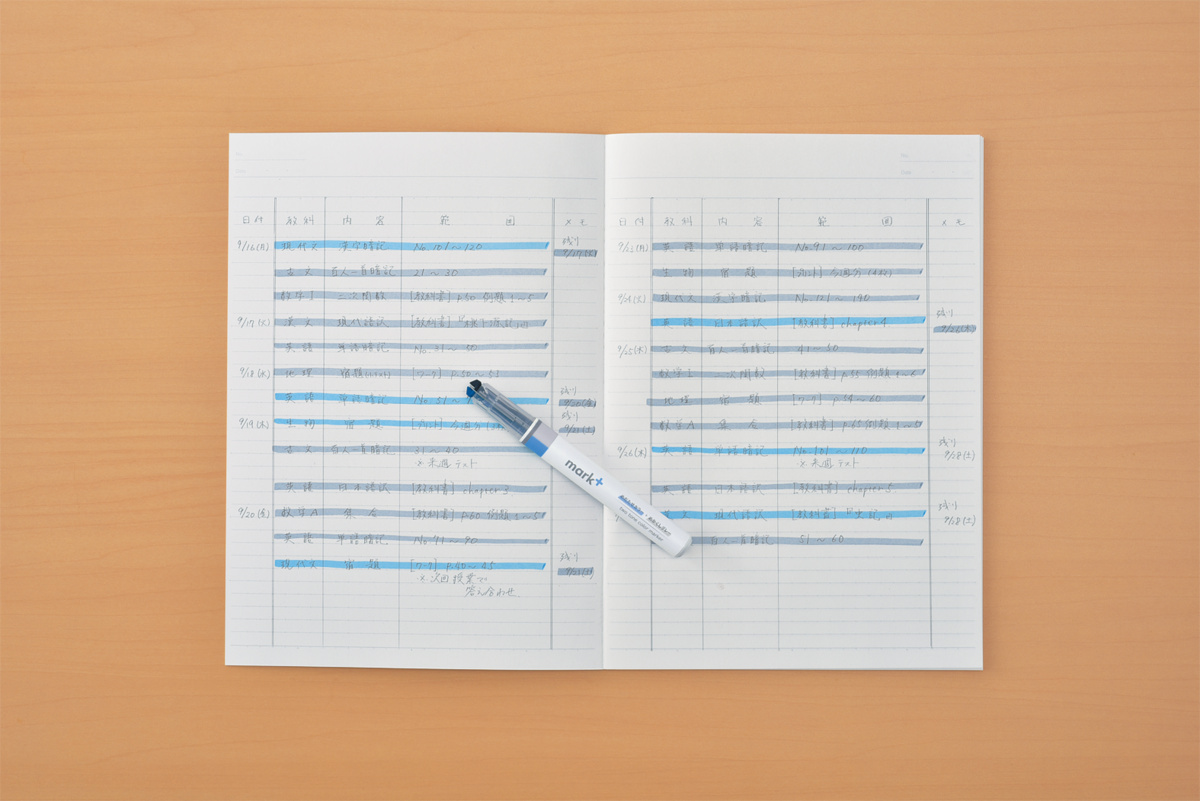 日付 教科 内容 範囲 メモ
9/16(月) 現代文 漢字暗記 No.101~120 残り
9/17(火)
古文 百人一首暗記 21~30
数学Ⅰ 二次関数 [教科書] p.50 例題1~5
9/17(火) 漢文 現代語訳 [教科書]
英語 単語暗記 No.31~50
9/18(水) 地理 宿題 [ワーク] p.50~53
残り
英語 単語暗記 No.51~ 9/20(金)
残り
9/19(木) 生物 宿題 [プリント] 今週分
古文 百人一首暗記 31~40
※来週テスト
英語 日本語訳 [教科書] chapter3
9/20(金) 数学A 集合 [教科書] p.60 例題1~5
英語 単語暗記 No.71~90
残り
現代文 宿題 [ワーク] p.40~45
※次回授業で
答え合わせ
mark+
two tone color marker
日付 教科 内容 範囲 メモ
9/23(月) 英語 単語暗記 No.91~100
生物 宿題 [プリント] 今週分
9/24(火) 現代文 漢字暗記 No.121~140
残り
英語 日本語訳 [教科書] chapter4
9/25(水) 古文 百人一首暗記 41~50
二次関数 [教科書] p.55 例題
地理 宿題 [ワーク] p.54~60
数学A 集合 [教科書] p.65 例題
残り
9/26(木) 英語 単語暗記 No.101~110 9/28(土)
※来週テスト
英語 日本語訳 [教科書] chapter5
残り
漢文 現代語訳 [教科書] 9/28(土)
百人一首暗記 51~60